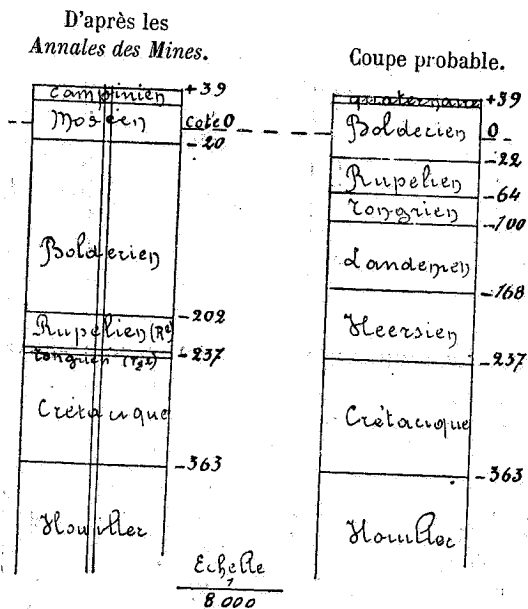 D'après les
Annales des Mines.
Campinien
+39
Moséen
cote 0
-20
Boldérien
-202
Rupélien (R2)
-237
Tongrien
Crétacique
-363
Houiller
Coupe probable.
quaternaire
+39
Boldérien
0
-22
Rupélien
-64
Tongrien
-100
Landénien
-168
Heersien
-237
Crétacique
-363
Houiller
Echelle
1
8 000